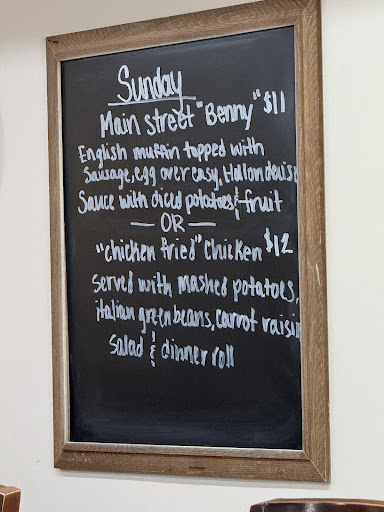 Sunday
Main street "Benny" $11
English muffin topped with
Sausage, egg over easy, Hallondeuise
Sauce with diced potatoes & fruit
— OR —
"chicken fried" Chicken $12
Served with mashed potatoes,
italian green beans, carrot raisin
salad & dinner roll